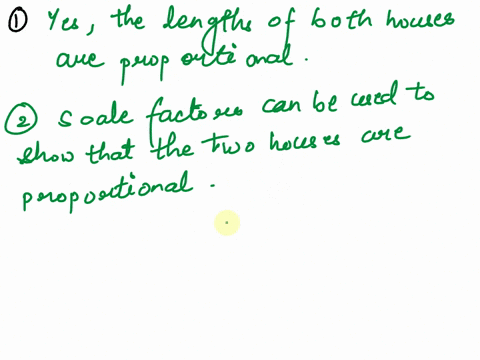 ① Yes, the lengths of both houses
are proportional.
② Scale factors can be used to
show that the two houses are
proportional.